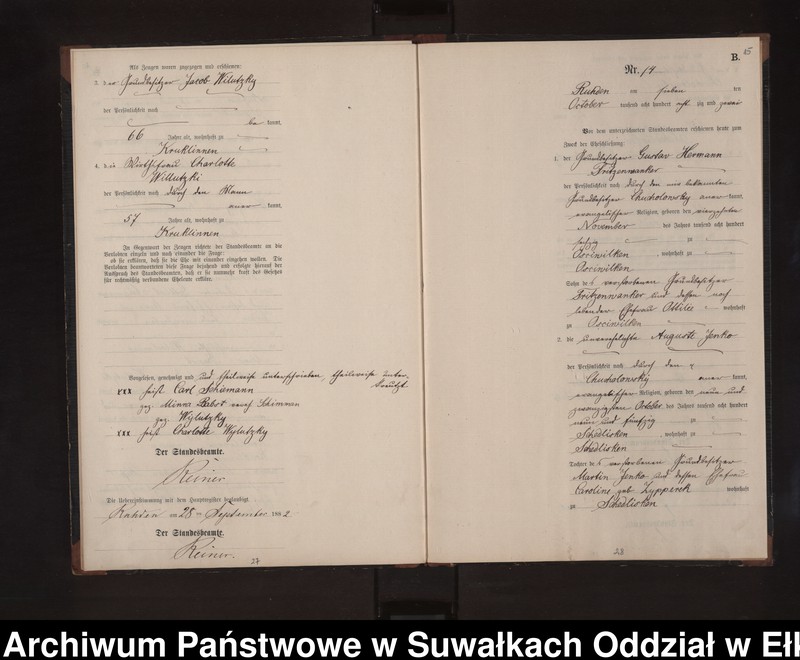 Als Zeugen waren zugezogen und erschienen:
3. der Grundbesitzer Jacob Wilutzky
der Persönlichkeit nach
be kannt,
66 Jahre alt, wohnhaft zu
Kruklinnen
4. die Wirthsfrau Charlotte
Willutzki
der Persönlichkeit nach durch den Mann
kannt,
57 Jahre alt, wohnhaft zu
Kruklinnen
In Gegenwart der Zeugen richtete der Standesbeamte an die
Verlobten einzeln und nach einander die Frage:
ob sie erklären, daß sie die Ehe mit einander eingehen wollen. Die
Verlobten beantworteten diese Frage bejahend und erfolgte hierauf der
Ausspruch des Standesbeamten, daß er sie nunmehr kraft des Gesetzes
für rechtmäßig verbundene Eheleute erkläre.
Vorgelesen, genehmigt und theilweise unterschrieben theilweise unter-
kreuzt
xxx heißt Carl Schimann
gez. Minna
gez. Wylutzky
xxx heißt Charlotte Wylutzky
Der Standesbeamte.
Reiner
Die Uebereinstimmung mit dem Hauptregister beglaubigt.
Ruhden am 28 ten September 1882
Der Standesbeamte.
Reiner.
27
15
B.
Nr. 14
Ruhden am sieben ten
October tausend acht hundert acht zig und zwei
Vor dem unterzeichneten Standesbeamten erschienen heute zum
Zweck der Eheschließung:
1. der Grundbesitzer Gustav Hermann
Fritzenwanker
der Persönlichkeit nach durch den mir bekannten
Grundbesitzer Chucholowsky aner kannt,
evangelischer Religion, geboren den vierzehnten
November des Jahres tausend acht hundert
sechzig zu
Osciwilken, wohnhaft zu
Osciwilken
Sohn des verstorbenen Grundbesitzer
Fritzenwanker und dessen noch
lebender Ehefrau Ottilie wohnhaft
zu Osciwilken
2. die unverehelichte Auguste Jenko
der Persönlichkeit nach durch den
Chucholowsky aner kannt,
evangelischer Religion, geboren den neun und
zwanzigsten October des Jahres tausend acht hundert
neun und fünfzig zu
Schedlisken, wohnhaft zu
Schedlisken
Tochter des verstorbenen Grundbesitzer
Martin Jenko und dessen Ehefrau
Caroline geb. wohnhaft
zu Schedlisken
28
Archiwum Państwowe w Suwałkach Oddział w Ełk